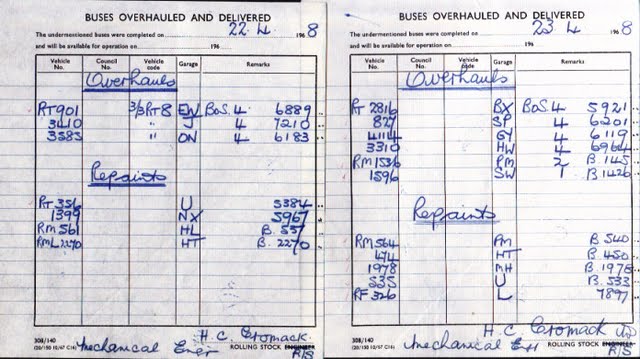 BUSES OVERHAULED AND DELIVERED
22.4 196 8
The undermentioned buses were completed on
and will be available for operation on 196
Vehicle No. Council No. Vehicle code Garage Remarks
Overhauls
RT 901 3/3RT8 EW BoS. 4 6889
3410 " J 4 7210
3383 " ON 4 6183
Repaints
RT 356 U 5384
1399 NX 5967
RM 561 HL B. 557
RML 2270 HT B. 2270
308/140
Mechanical Engr H. C. Cromack.
ROLLING STOCK ENGINEER
R/S
BUSES OVERHAULED AND DELIVERED
23 4 196 8
The undermentioned buses were completed on
and will be available for operation on 196
Vehicle No. Council No. Vehicle code Garage Remarks
Overhauls
RT 2816 BX BoS 4 5921
827 SP 4 6201
4114 GY 4 6119
3310 HW 4 6964
RM 1536 PM 2 B. 145
1596 SW 1 B. 1426
Repaints
RM 564 AM B 540
474 HT B. 450
1978 MH B. 1978
535 U B. 533
RF 326 L 7897
308/140
Mechanical H. C. Cromack
ROLLING STOCK ENGINEER
R/S